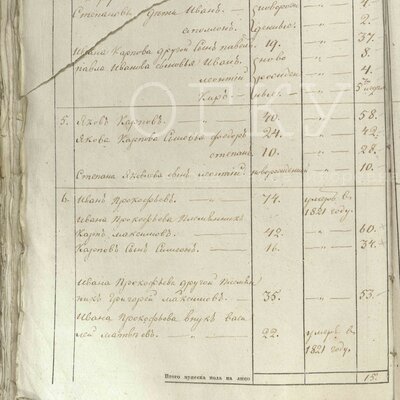 Степановъ дѣти Иванъ. новорож 4.
Исполконъ. денные. 2.
Ивана Карпова другой Сынъ павелъ 19. — „ — 37.
павла Иванова сыновья Иванъ. вново 8.
леонтей рожден 4.
Киръ ные.
5. Яковъ Карповъ. 40. — „ — 58.
Якова Карпова Сыновья Ѳедоръ 24. — „ — 42.
степанъ 10. — „ — 28.
Степана Яковлева сынъ леонтей новорожденный — „ — 10.
6. Иванъ Прокофьевъ. — 74. умеръ в
1821 году.
Ивана Прокофьева Племянникъ
Карпъ Максимовъ. — 42. — „ — 60.
Карповъ Сынъ Симеонъ. — 16. — „ — 34.
Ивана Прокофьева другой Племян
никъ Григорей Максимовъ. — 35. — „ — 53.
Ивана Прокофьева внукъ васи
лей Матвѣевъ. 22. умеръ в
1821 году.
Итого мужеска пола на лицо 15.